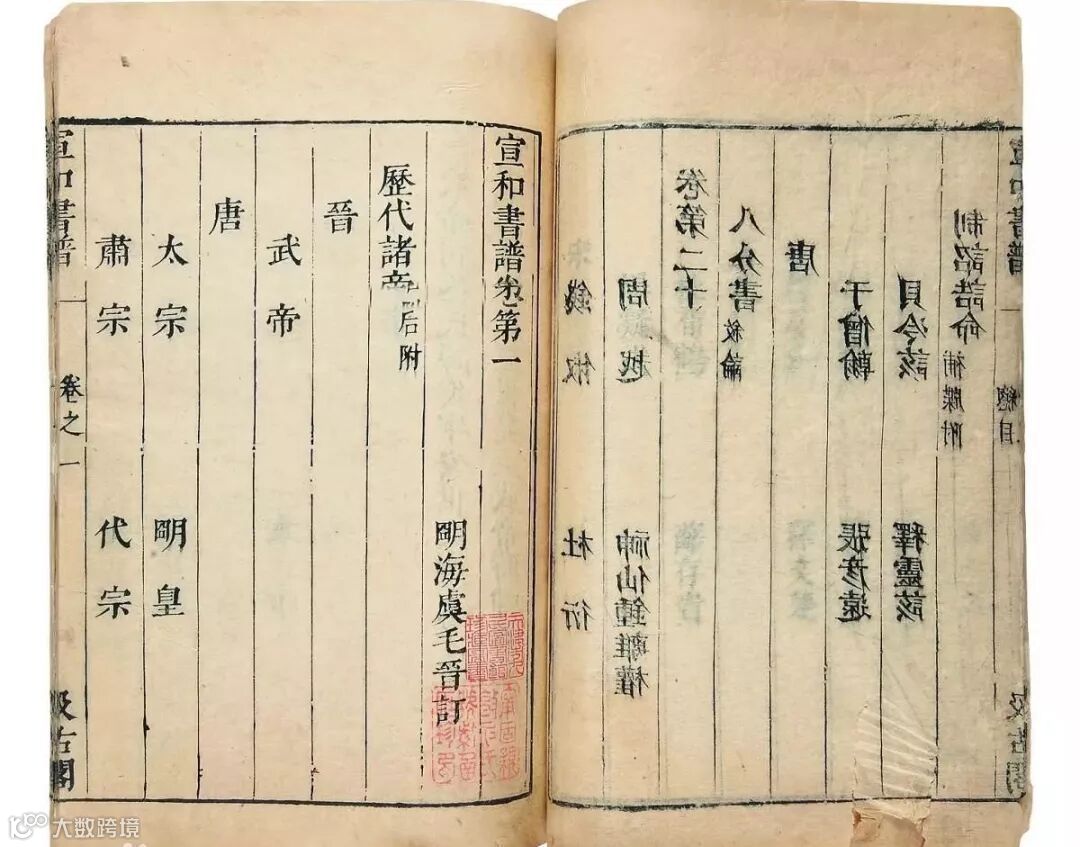 宋錢俶 杜衍
周越 神仙鍾離權
卷第二十
八分書 敘論
唐
于僧翰 張彥遠
貝冷該 釋靈該
制詔誥命 補牒附
宣和書譜 一 總目 汲古閣
宣和書譜卷第一
明海虞毛晉訂
歷代諸帝 后附
晉
武帝
唐
太宗 明皇
肅宗 代宗
宣和書譜 一 卷之一 汲古閣
大数跨境